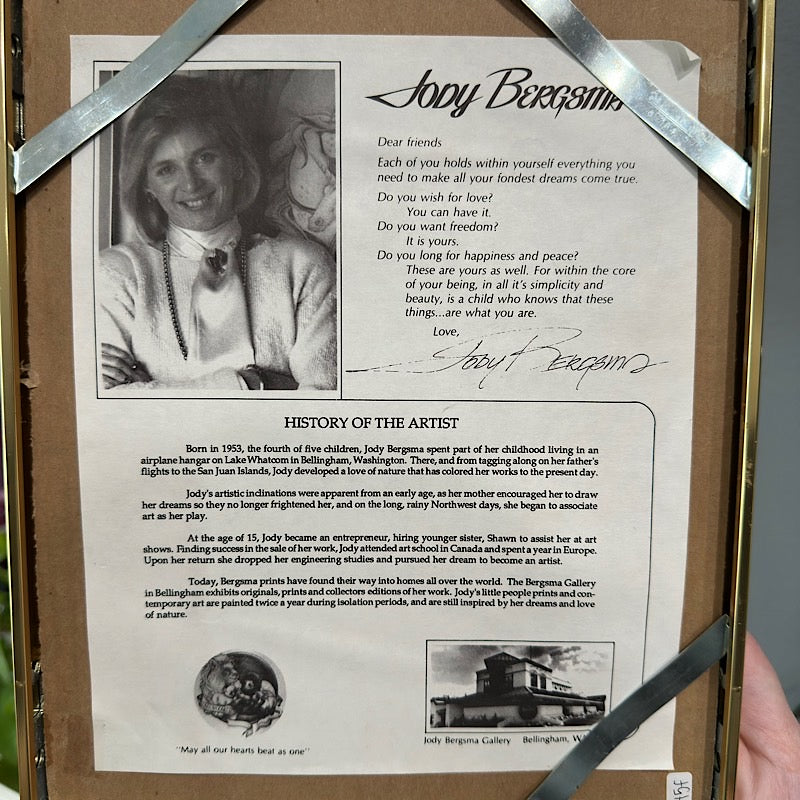 JODY BERGSMA
Dear friends
Each of you holds within yourself everything you
need to make all your fondest dreams come true.
Do you wish for love?
You can have it.
Do you want freedom?
It is yours.
Do you long for happiness and peace?
These are yours as well. For within the core
of your being, in all it's simplicity and
beauty, is a child who knows that these
things...are what you are.
Love,
Jody Bergsma
HISTORY OF THE ARTIST
Born in 1953, the fourth of five children, Jody Bergsma spent part of her childhood living in an
airplane hangar on Lake Whatcom in Bellingham, Washington. There, and from tagging along on her father's
flights to the San Juan Islands, Jody developed a love of nature that has colored her works to the present day.
Jody's artistic inclinations were apparent from an early age, as her mother encouraged her to draw
her dreams so they no longer frightened her, and on the long, rainy Northwest days, she began to associate
art as her play.
At the age of 15, Jody became an entrepreneur, hiring younger sister, Shawn to assist her at art
shows. Finding success in the sale of her work, Jody attended art school in Canada and spent a year in Europe.
Upon her return she dropped her engineering studies and pursued her dream to become an artist.
Today, Bergsma prints have found their way into homes all over the world. The Bergsma Gallery
in Bellingham exhibits originals, prints and collectors editions of her work. Jody's little people prints and con-
temporary art are painted twice a year during isolation periods, and are still inspired by her dreams and love
of nature.
"May all our hearts beat as one"
Jody Bergsma Gallery Bellingham,